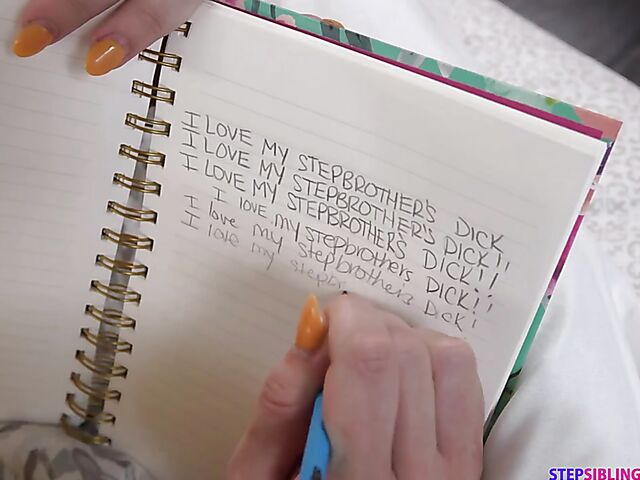 I LOVE MY STEPBROTHER'S DICK
I LOVE MY STEPBROTHER'S DICK!!
I LOVE MY STEPBROTHERS DICK!!
I love my stepbrothers DICK!!
I love my stepbrothers DICK!
I love my stepbr
STEPSIBLING